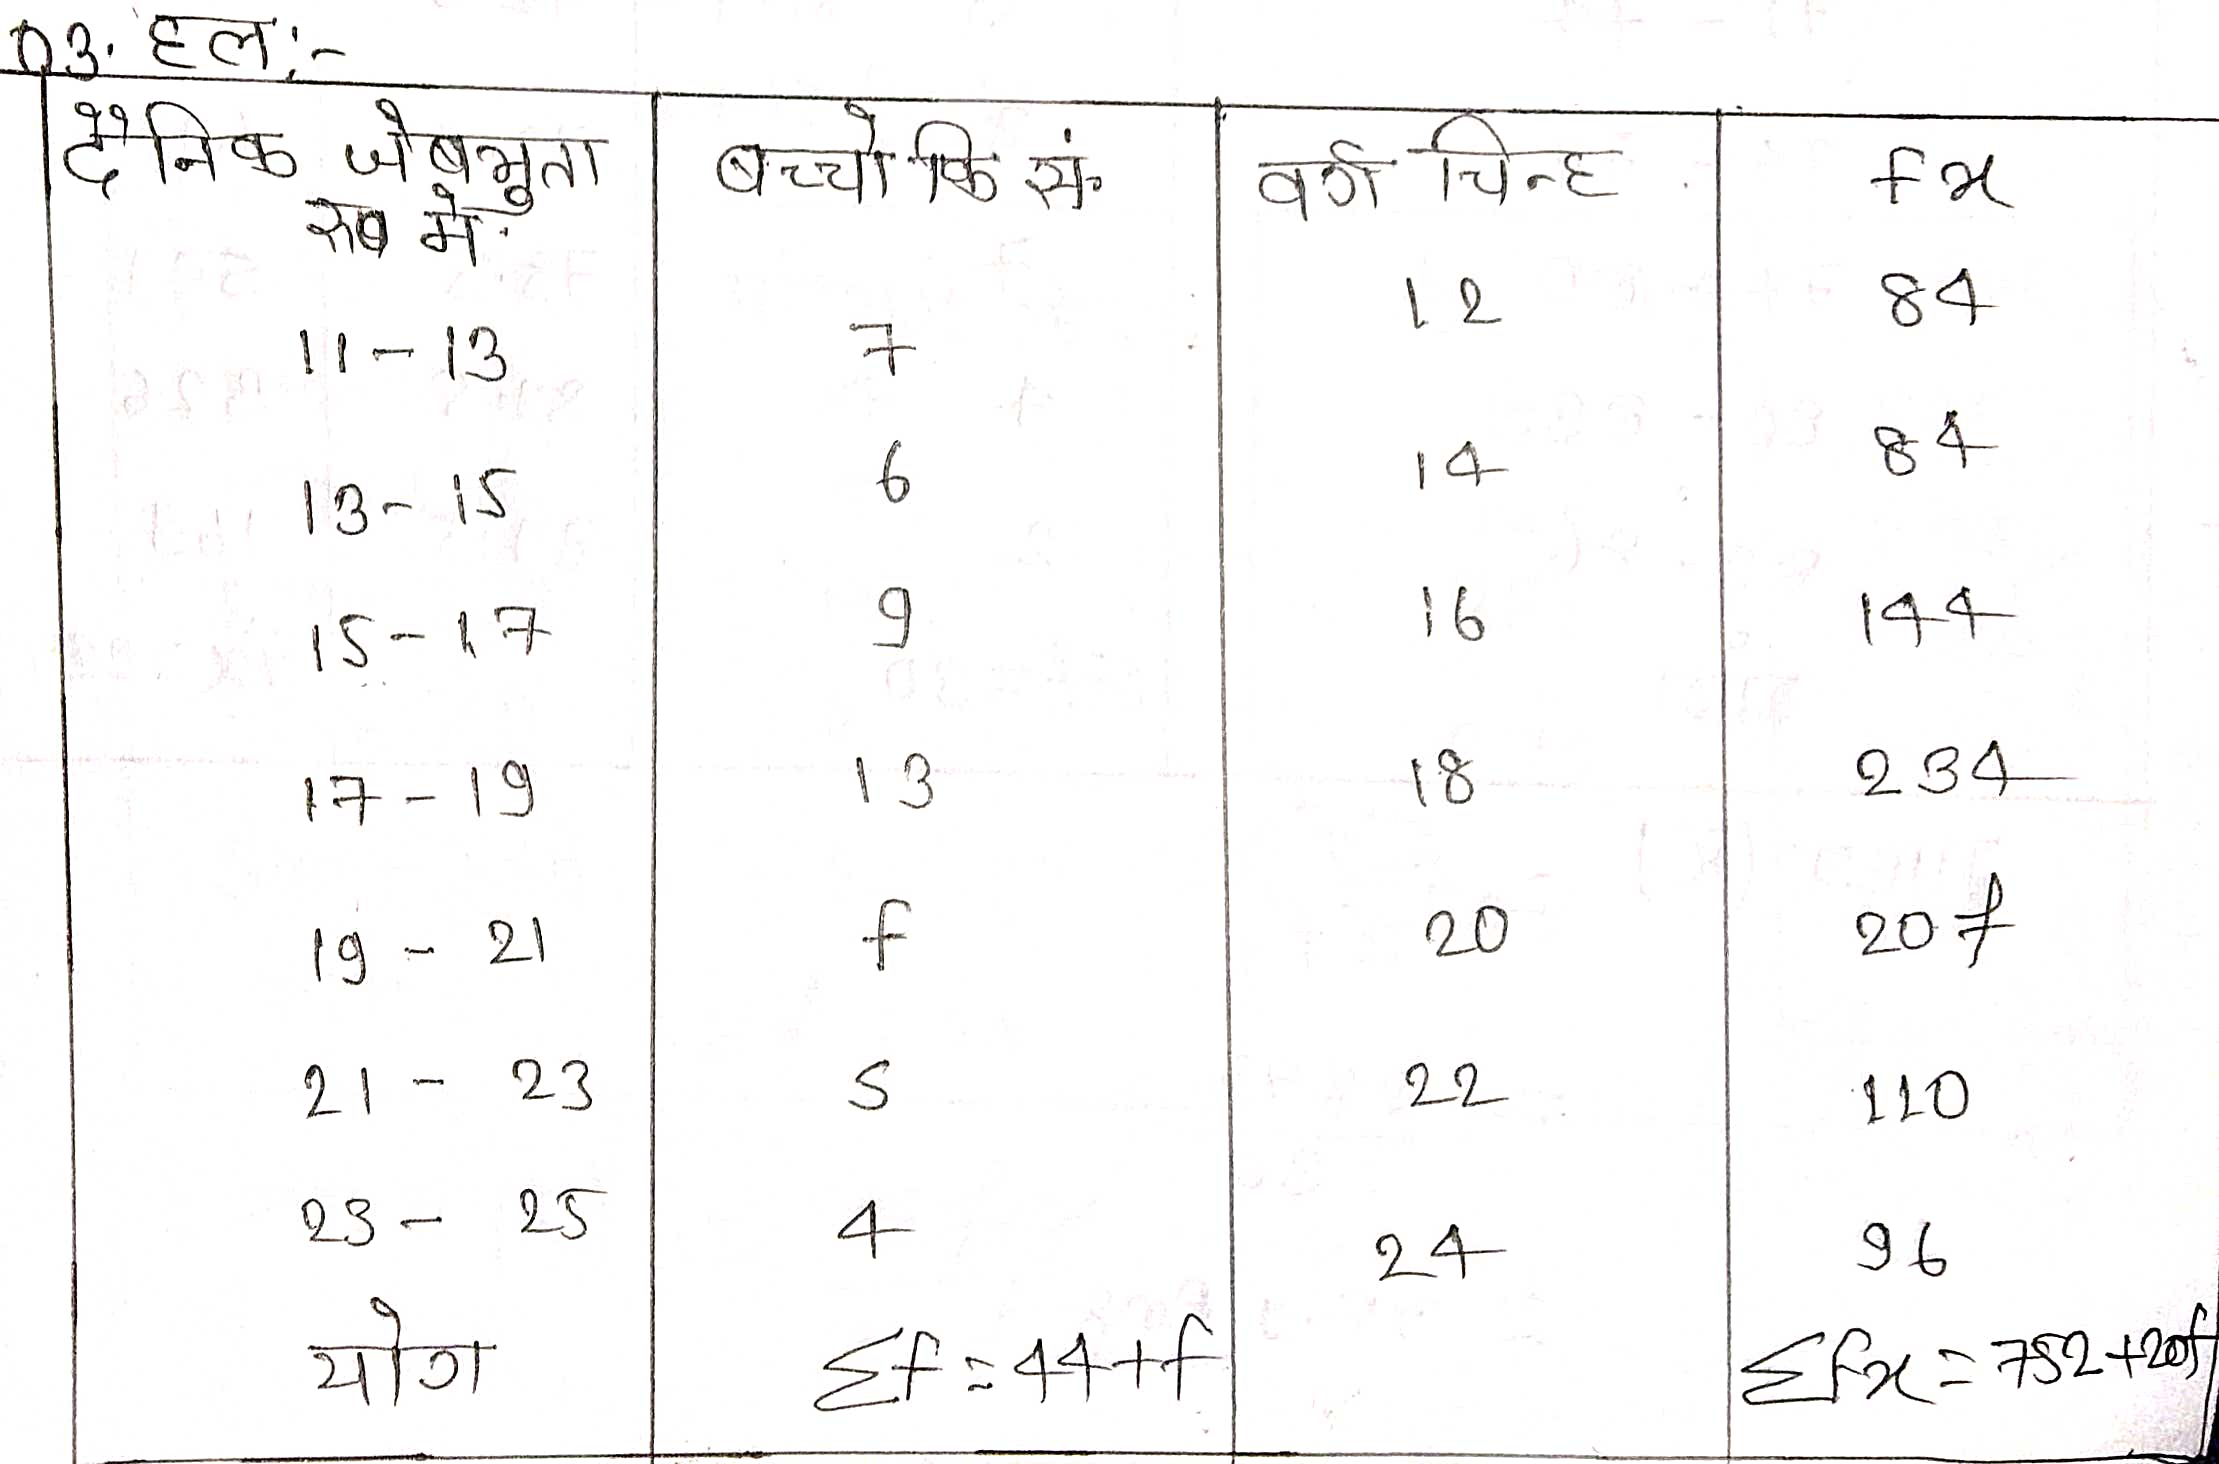 03. हल:-
दैनिक जेबभुता बच्चो कि सं. वर्ग चिन्ह fx
रू0 में
11-13 7 12 84
13-15 6 14 84
15-17 9 16 144
17-19 13 18 234
19-21 f 20 20f
21-23 5 22 110
23-25 4 24 96
योग Σf=44+f Σfx=752+20f